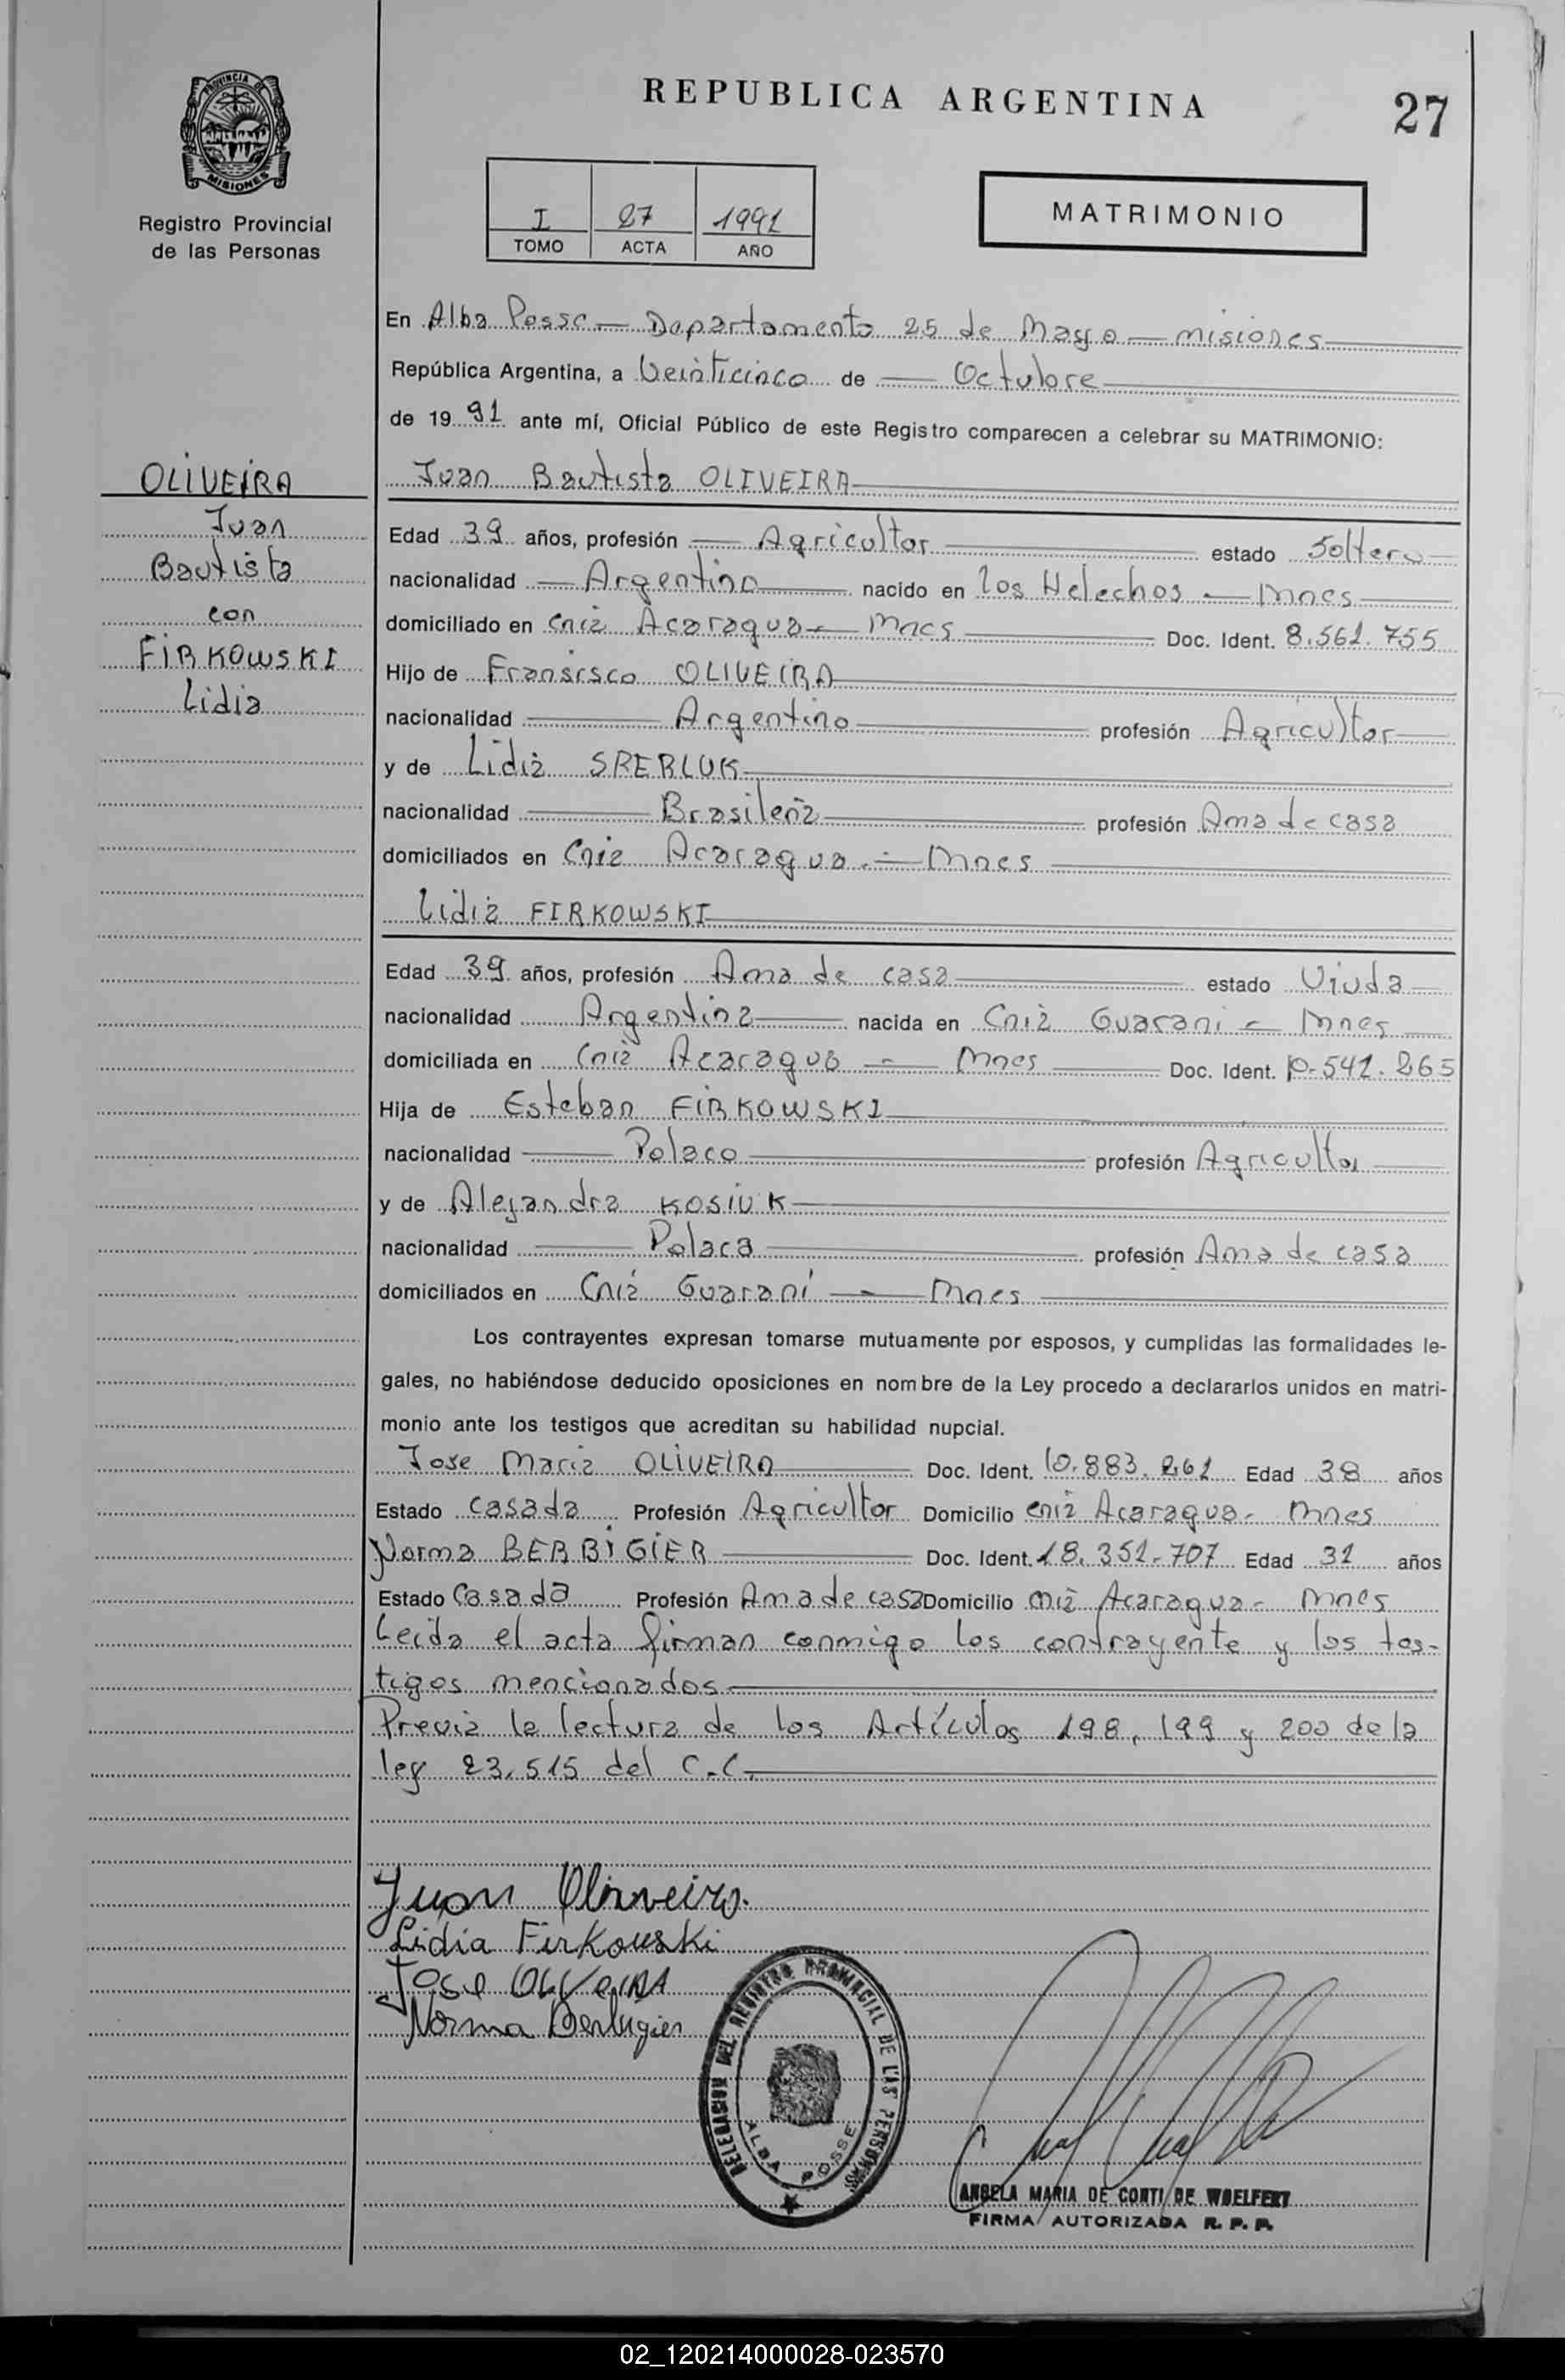 PROVINCIA DE
MISIONES
Registro Provincial
de las Personas
REPUBLICA ARGENTINA
27
I 27 1991
TOMO ACTA AÑO
MATRIMONIO
En Alba Posse — Departamento 25 de Mayo — misiones
República Argentina, a Veinticinco de — Octubre
de 19 91 ante mí, Oficial Público de este Registro comparecen a celebrar su MATRIMONIO:
OLIVEIRA
Juan
Bautista
con
FIRKOWSKI
Lidia
Juan Bautista OLIVEIRA
Edad 39 años, profesión — Agricultor estado Soltero
nacionalidad — Argentino nacido en Los Helechos — Mnes
domiciliado en Cnia Acaragua — Mnes Doc. Ident. 8.561.755
Hijo de Fransisco OLIVEIRA
nacionalidad — Argentino profesión Agricultor
y de Lidia SPERLUK
nacionalidad — Brasileña profesión Ama de casa
domiciliados en Cnia Acaragua. — Mnes
Lidia FIRKOWSKI
Edad 39 años, profesión Ama de casa estado Viuda
nacionalidad Argentina nacida en Cnia Guarani — Mnes
domiciliada en Cnia Acaragua — Mnes Doc. Ident. 10.541.265
Hija de Esteban FIRKOWSKI
nacionalidad — Polaco profesión Agricultor
y de Alejandra KOSIUK
nacionalidad — Polaca profesión Ama de casa
domiciliados en Cnia Guaraní — Mnes
Los contrayentes expresan tomarse mutuamente por esposos, y cumplidas las formalidades le-
gales, no habiéndose deducido oposiciones en nombre de la Ley procedo a declararlos unidos en matri-
monio ante los testigos que acreditan su habilidad nupcial.
Jose Maria OLIVEIRA Doc. Ident. 10.883.261 Edad 38 años
Estado Casada Profesión Agricultor Domicilio Cnia Acaragua - Mnes
Norma BERBIGIER Doc. Ident. 18.351.707 Edad 31 años
Estado Casada Profesión Ama de casa Domicilio Cnia Acaragua - Mnes
Leida el acta firman conmigo los contrayente y los tes-
tigos mencionados
Previa la lectura de los Artículos 198, 199 y 200 de la
ley 23.515 del C.C.
Juan Oliveira
Lidia Firkowski
Jose OLIVeiRA
Norma Berbigier
DELEGACION DEL REGISTRO PROVINCIAL DE LAS PERSONAS
ALBA POSSE
ANGELA MARIA DE CONTI DE WOELFERT
FIRMA AUTORIZADA R. P. P.
02_120214000028-023570